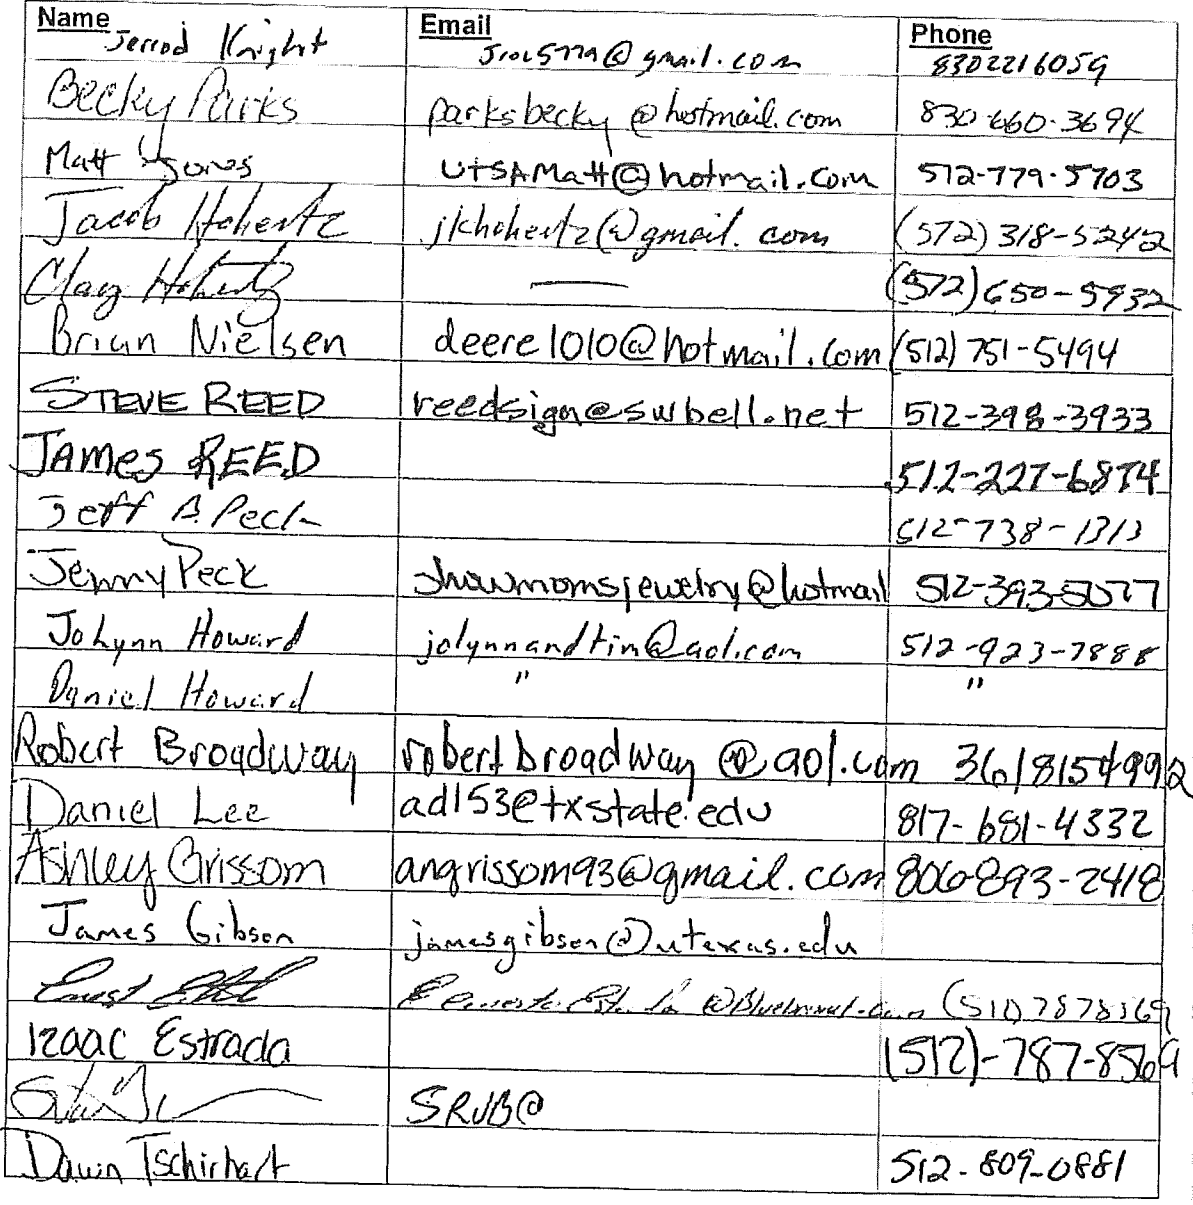 Name Email Phone
Jerrod Knight @gmail.com 8302216059
Becky Parks parksbecky@hotmail.com 830-660-3694
Matt Jones UTSAMatt@hotmail.com 512-779-5703
Jacob Hohertz jkhohertz@gmail.com (512) 318-5242
Clay Hohertz — (512) 650-5932
Brian Nielsen deere1010@hotmail.com (512) 751-5494
STEVE REED reedsign@swbell.net 512-398-3933
JAMES REED 512-227-6874
Jeff B. Peck 512-738-1313
Jenny Peck showmomsjewelry@hotmail 512-393-5077
JoLynn Howard jolynnandtim@aol.com 512-923-7888
Daniel Howard " "
Robert Broadway robertbroadway@aol.com 3618154992
Daniel Lee adl53@txstate.edu 817-681-4332
Ashley Grissom angrissom93@gmail.com 806-893-2418
James Gibson jamesgibson@utexas.edu
(512) 7878569
Izaac Estrada (512)-787-8569
SRJB@
Dawn Tschirhart 512-809-0881